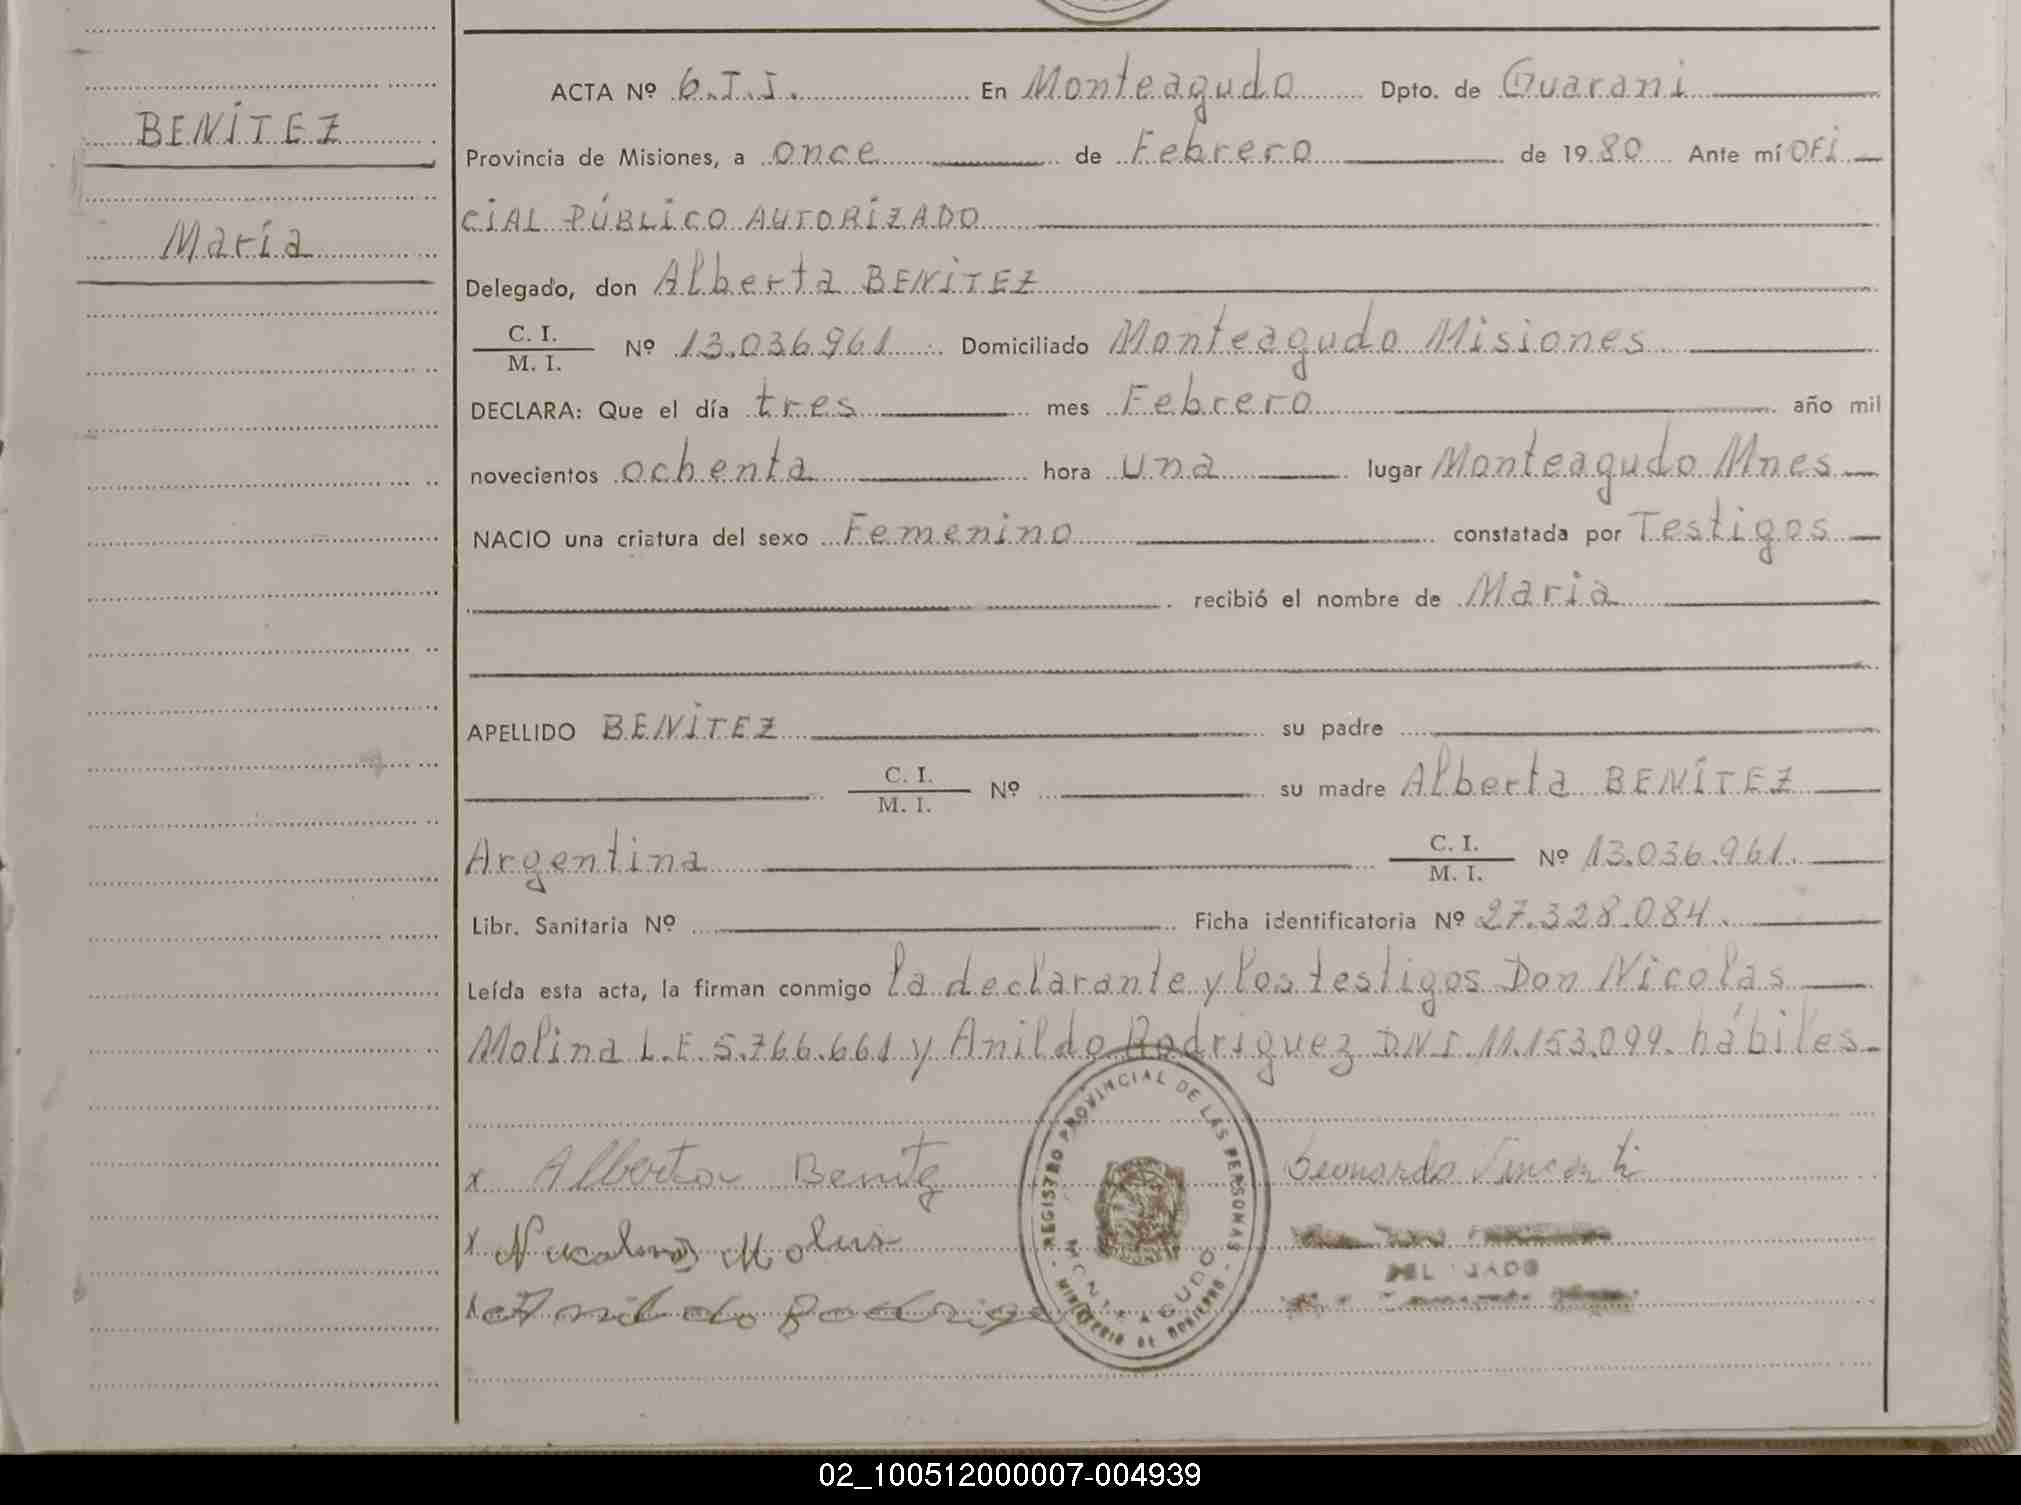 BENÍTEZ
María
ACTA Nº 6.I.I. En Monteagudo Dpto. de Guarani
Provincia de Misiones, a once de Febrero de 1980 Ante mí OFI
CIAL PÚBLICO AUTORIZADO
Delegado, don Alberta BENÍTEZ
C. I.
M. I. Nº 13.036.961 Domiciliado Monteagudo Misiones
DECLARA: Que el día tres mes Febrero año mil
novecientos ochenta hora una lugar Monteagudo Mnes
NACIO una criatura del sexo Femenino constatada por Testigos
recibió el nombre de María
APELLIDO BENÍTEZ su padre
C. I.
M. I. Nº su madre Alberta BENÍTEZ
Argentina C. I.
M. I. Nº 13.036.961.
Libr. Sanitaria Nº Ficha identificatoria Nº 27.328.084.
Leída esta acta, la firman conmigo la declarante y los testigos Don Nicolas
Molina L.E. 5.766.661 y Anildo Rodriguez D.N.I. 11.153.099. hábiles
REGISTRO PROVINCIAL DE LAS PERSONAS
MONTEAGUDO
MINISTERIO DE GOBIERNO
x Alberta Benitez
x
x Anildo Rodrigue
02_100512000007-004939